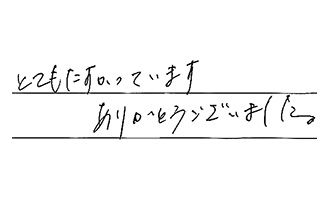 とてもたすかっています
ありがとうございました。